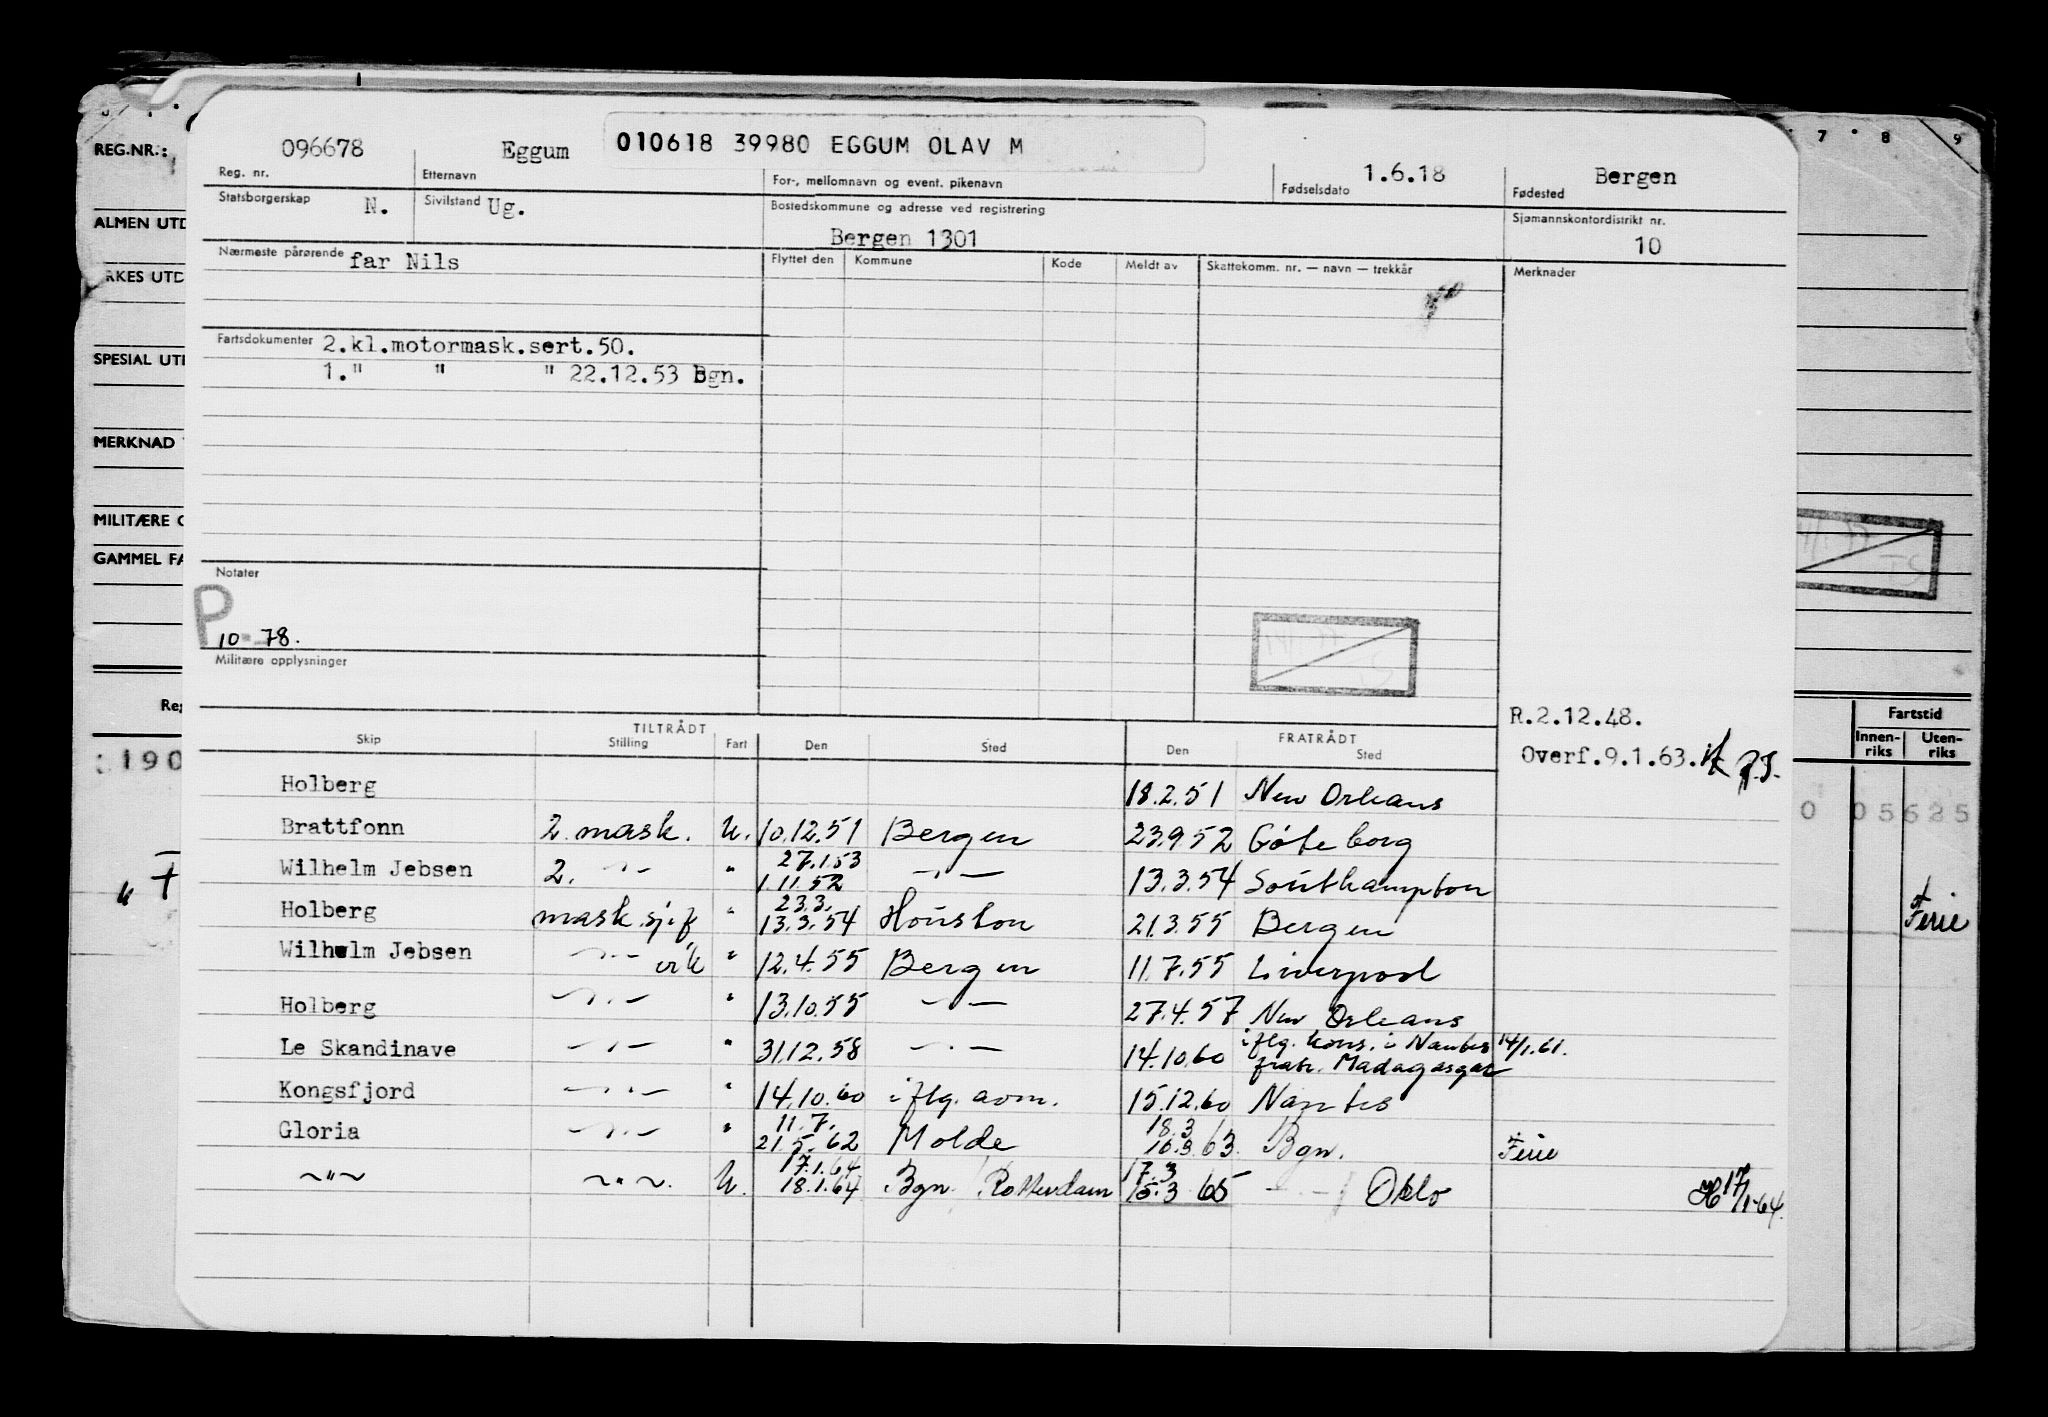 REG.NR.:
ALMEN UTD
RKES UTD
SPESIAL UT
MERKNAD
MILITÆRE
GAMMEL FA
Reg
190
" F
7 8 9
Fartstid
Innen-riks Uten-riks
0 05625
Ferie
096678 Eggum 010618 39980 EGGUM OLAV M 1.6.18 Bergen
Reg. nr. Etternavn For-, mellomnavn og event. pikenavn Fødselsdato Fødested
Statsborgerskap N. Sivilstand Ug. Bostedskommune og adresse ved registrering Sjømannskontordistrikt nr.
Bergen 1301 10
Nærmeste pårørende far Nils Flyttet den Kommune Kode Meldt av Skattekomm. nr. — navn — trekkår Merknader
Fartsdokumenter 2.kl.motormask.sert.50.
1." " " 22.12.53 Bgn.
Notater
P
10-78.
Militære opplysninger
R.2.12.48.
Overf.9.1.63.
TILTRÅDT FRATRÅDT
Skip Stilling Fart Den Sted Den Sted
Holberg 18.2.51 New Orleans
Brattfonn 2. mask. U. 10.12.51 Bergen 23.9.52 Göteborg
27.1.53
Wilhelm Jebsen 2. -"- " 1.11.52 -"- 13.3.54 Southampton
23.3.
Holberg mask.sjef " 13.3.54 Houston 21.3.55 Bergen
Wilhelm Jebsen -"- vik " 12.4.55 Bergen 11.7.55 Liverpool
Holberg -"- " 13.10.55 -"- 27.4.57 New Orleans
Le Skandinave -"- " 31.12.58 -"- 14.10.60 iflg. kons. i Nantes 14/1.61.
fratr. Madagasgar
Kongsfjord -"- " 14.10.60 iflg. aom. 15.12.60 Nantes
11.7. 18.3
Gloria -"- " 21.5.62 Molde 16.3.63. Bgn. Ferie
17.1.64 17.3
-"- -"-. U. 18.1.64 Bgn. Rotterdam 15.3 65 -"- Oslo 17/1-64.